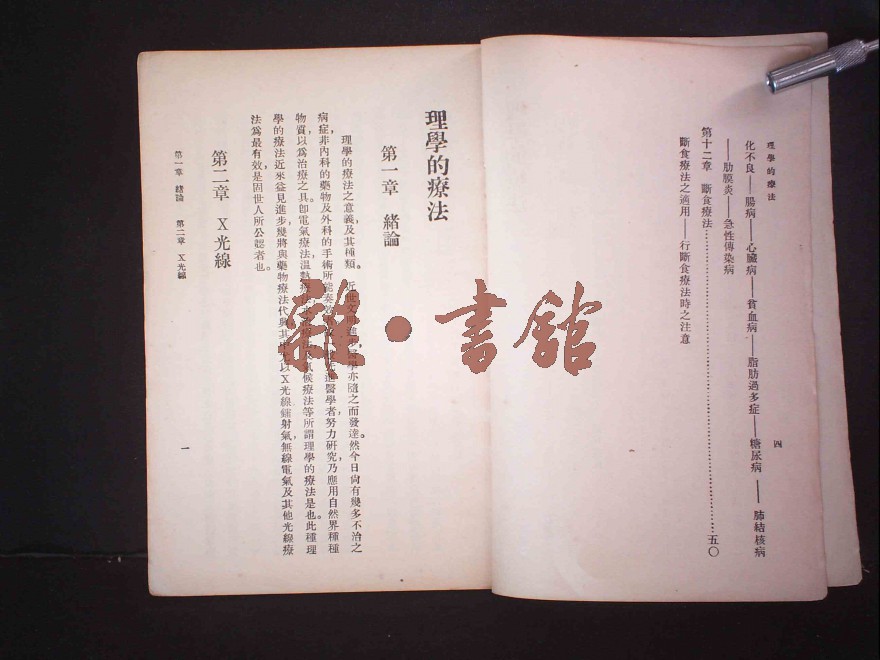 理學的療法
四
化不良——腸病——心臟病——貧血病——脂肪過多症——糖尿病——肺結核病
——肋膜炎——急性傳染病
第十二章 斷食療法……………………………五〇
斷食療法之適用——行斷食療法時之注意
理學的療法
第一章 緒論
理學的療法之意義,及其種類。 近世文 醫學亦隨之而發達。然今日尙有幾多不治之
病症,非內科的藥物及外科的手術所能奏 醫學者,努力研究,乃應用自然界種種
物質,以爲治療之具。卽電氣療法,溫熱療法, 氣候療法等,所謂理學的療法是也。此種理
學的療法,近來益見進步,幾將與藥物療法代興。其 以X光線鐳射氣,無線電氣,及其他光線療
法爲最有效,是固世人所公認者也。
第二章 X光線
第一章 緒論 第二章 X光線
一
雜·書館